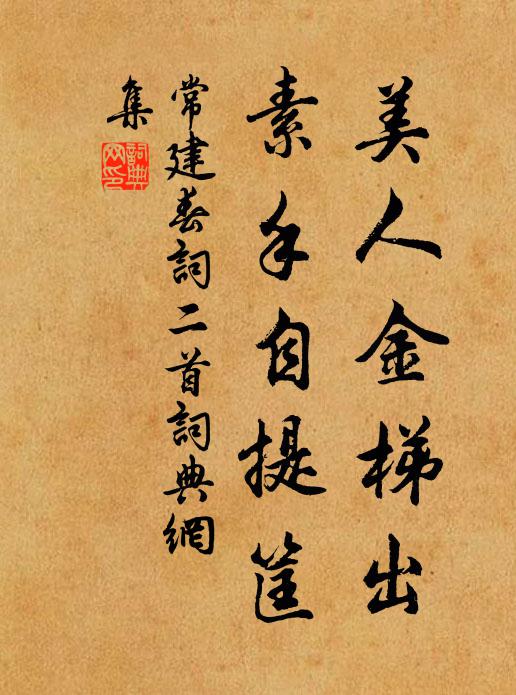 美人金梯出
素手自提筐
常建春詞二首詞典網
集
詞典網印